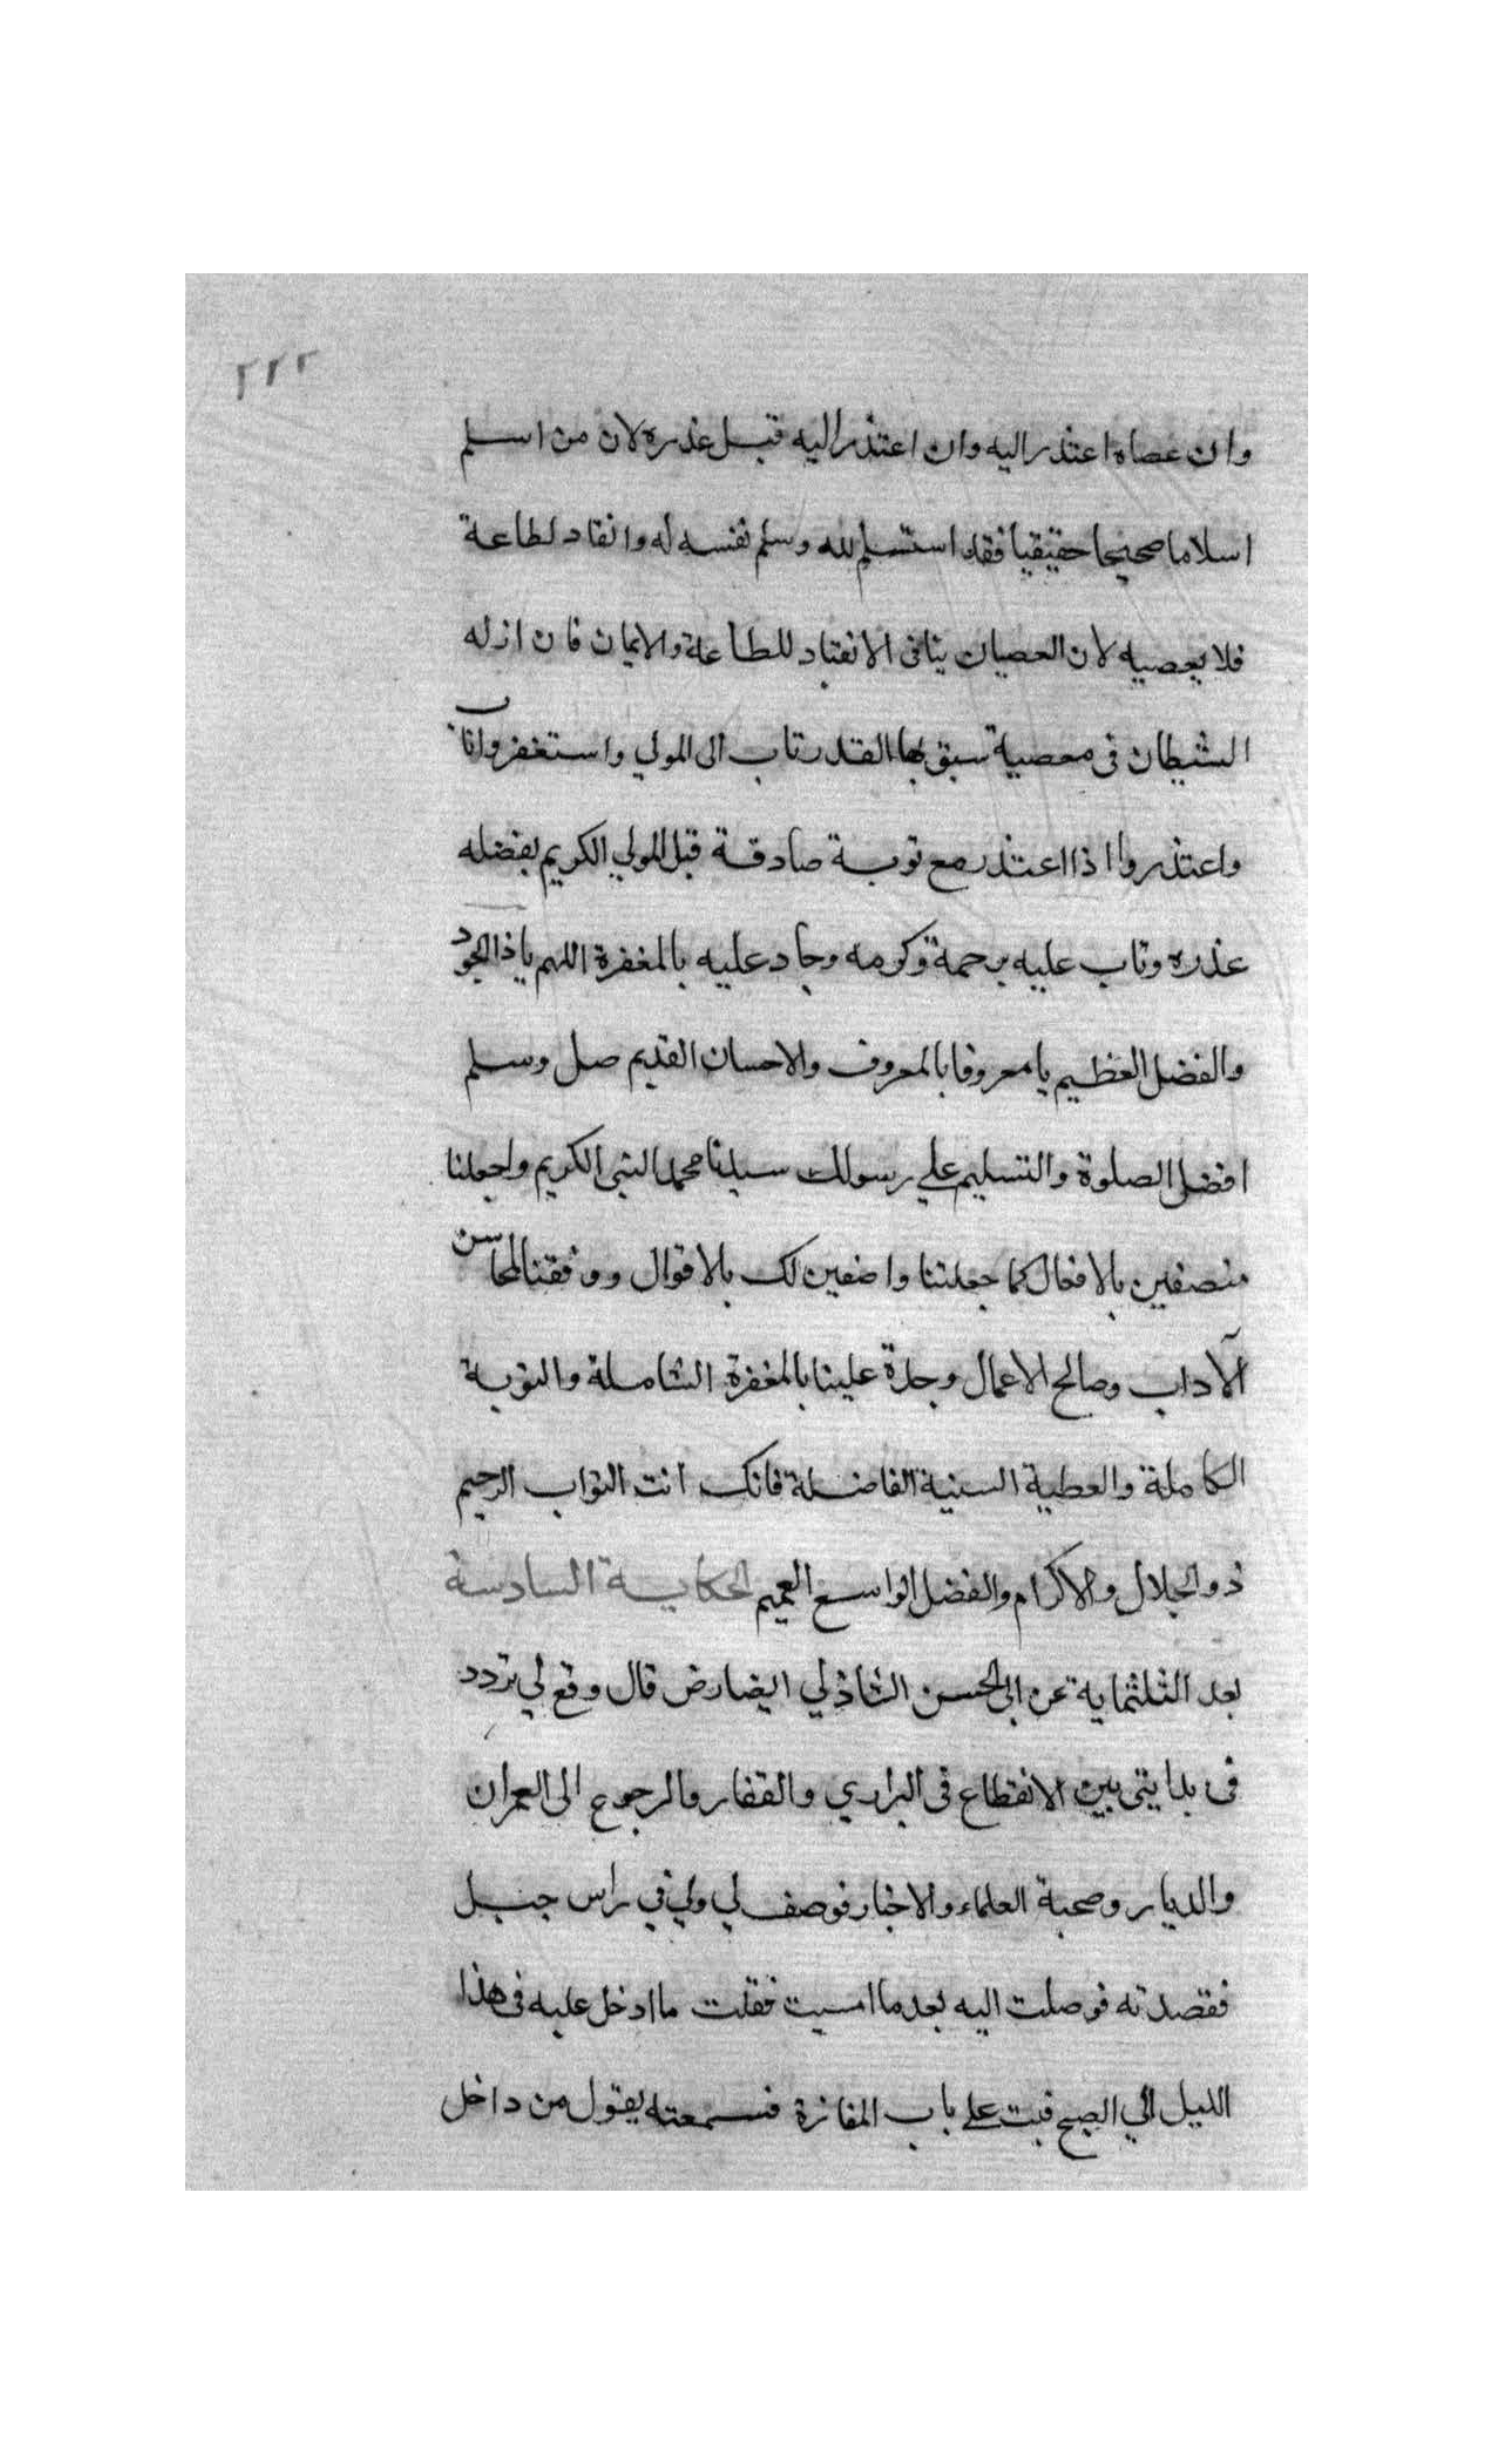 ٢٢٢
وان عصاه اعتذر اليه وان اعتذر اليه قبل عذره لان من اسلم
اسلاما صحيحا حقيقيا فقد استسلم لله وسلم نفسه له وانقاد لطاعة
فلا يعصيه لان العصيان ينافى الانقياد للطاعة والايمان فان ازله
الشيطان فى معصية سبق بها القدر تاب الى المولي واستغفر واناب
واعتذر واذا اعتذر مع توبة صادقة قبل المولي الكريم بفضله
عذره وتاب عليه برحمة وكرمه وجاد عليه بالمغفرة اللهم ياذا الجود
والفضل العظيم يا معروفا بالمعروف والاحسان القديم صل وسلم
افضل الصلوة والتسليم علي رسولك سيدنا محمد النبى الكريم واجعلنا
منصفين بالافعال كما جعلتنا واصفين لك بالاقوال ووفقنا لمحاسن
الآداب وصالح الاعمال وجد علينا بالمغفرة الشاملة والتوبة
الكاملة والعطية السنية الفاضلة فانك انت التواب الرحيم
ذو الجلال والاكرام والفضل الواسع العميم الحكاية السادسة
بعد الثلثماية عن ابى الحسن الشاذلي ايضا رض قال وقع لي تردد
فى بدايتى بين الانقطاع فى البراري والقفار والرجوع الى العمران
والديار وصحبة العلماء والاخيار فوصف لي ولي في راس جبل
فقصدته فوصلت اليه بعد ما امسيت فقلت ما ادخل عليه فى هذا
الليل الي الصبح فبت علي باب المغارة فسمعته يقول من داخل